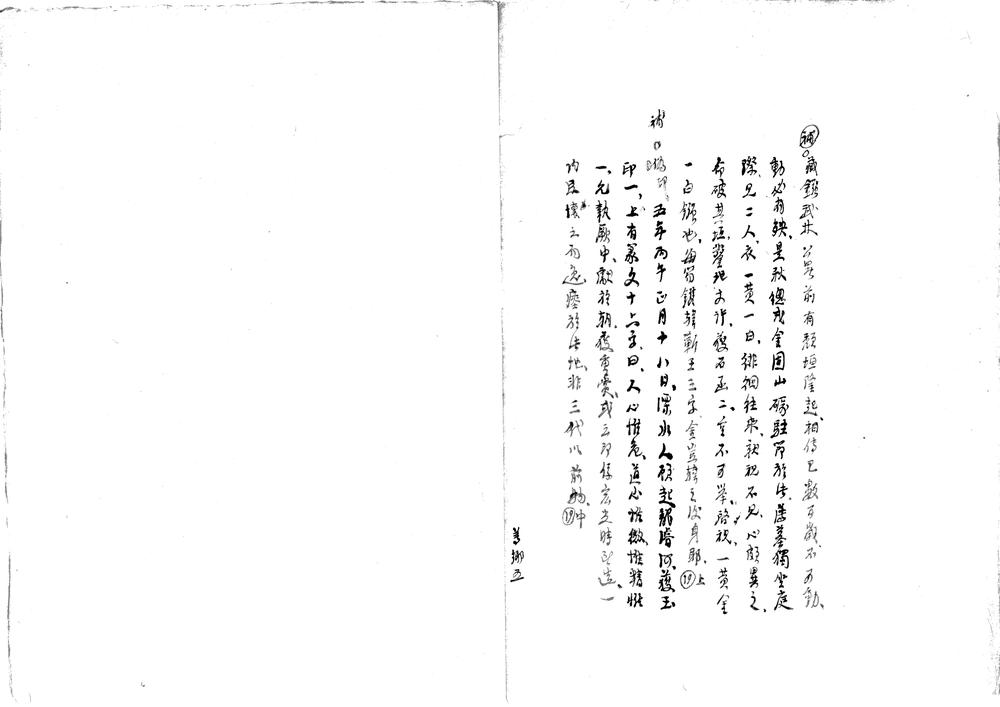 補 藏鏹武林 公署前有頹垣隆起、相傳已數百歲不可動、
動必有殃、是秋總戎金國山礪駐節於此、薄暮獨坐庭
際、見二人、衣一黃一白、徘徊往來、視不見、心頗異之、
命破其垣、鑿地丈許、獲石函二、重不可舉、啓視、一黃金
一白鏹也、每笏鐫韓蘄王三字、金豈韓之後身耶、⑲上
補 偽印 五年丙午正月十八日、溧水人顧起 河獲玉
印一、上有篆文十六字、曰、人心惟危、道心惟微、惟精惟
一、允執厥中、獻於朝、獲重賞、或云即係宏光時所造、一
內臣懷之而逸、瘞於此地、非三代以前物、⑲中